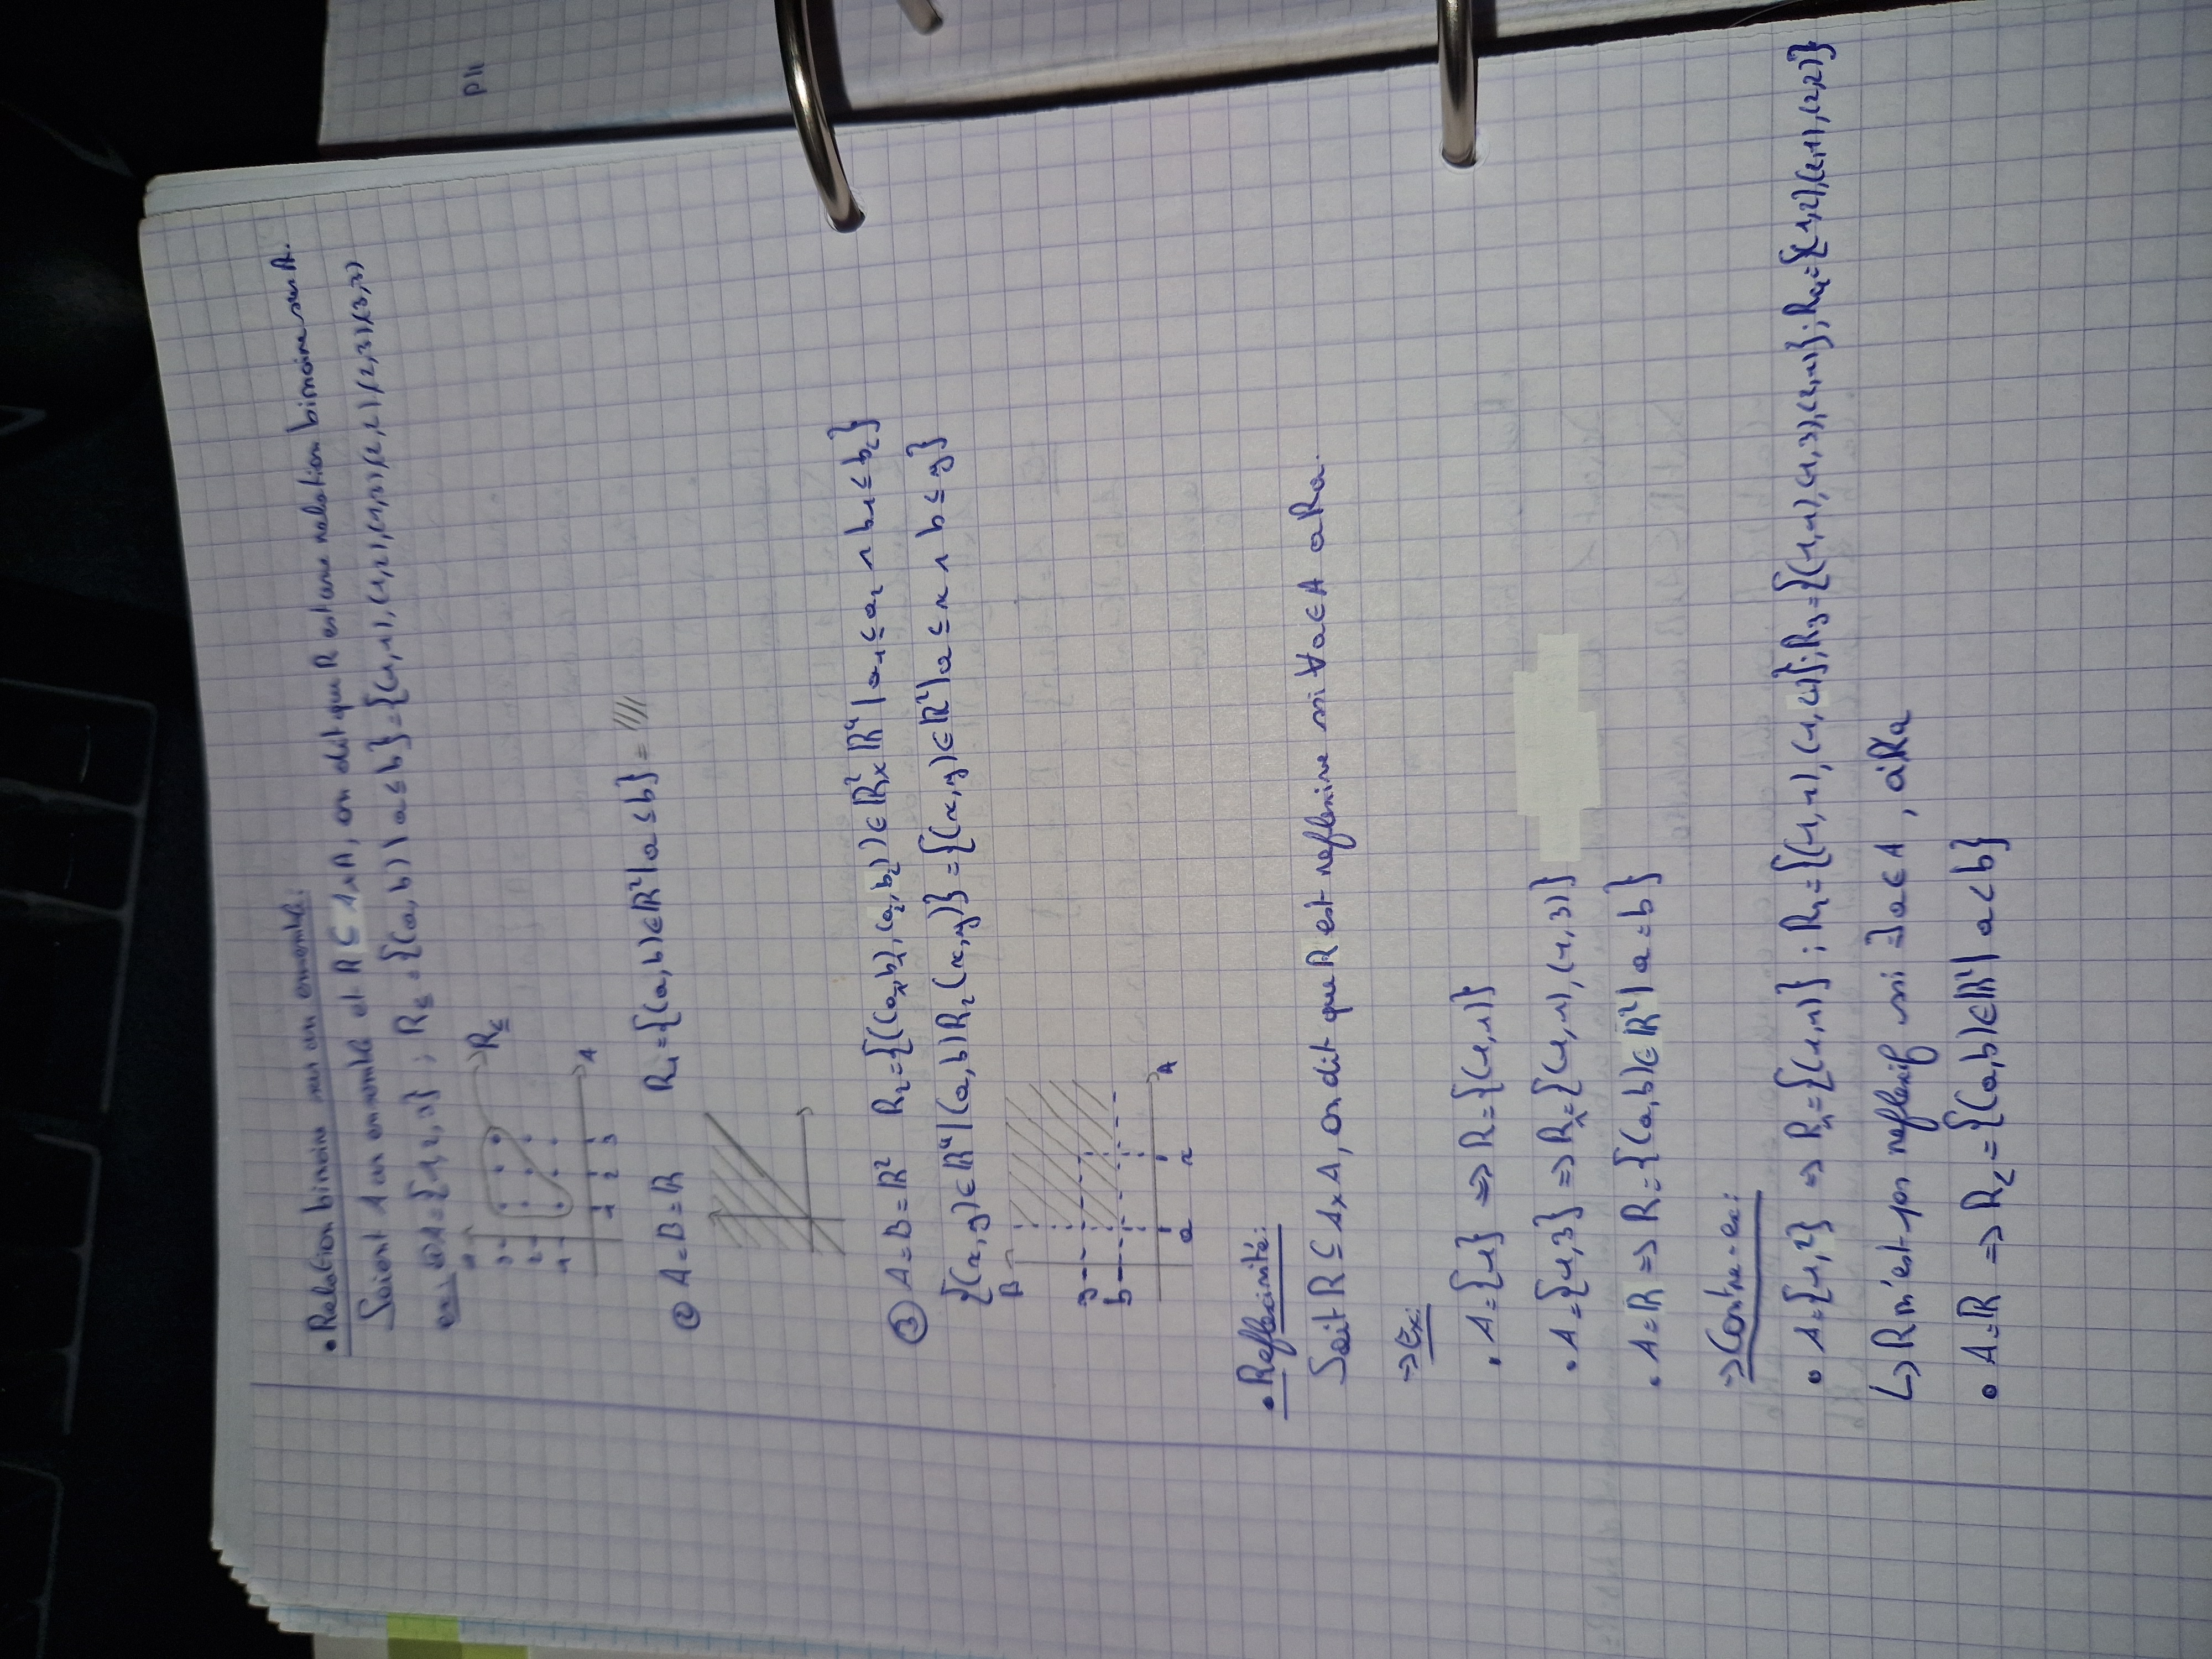 • Relation binaire sur un ensemble:
Soient A un ensemble et R ⊆ A×A, on dit que R est une relation binaire sur A.
ex: ① A={1,2,3} ; R≤ = {(a,b) | a≤b} = {(1,1),(1,2),(1,3)(2,2)(2,3)(3,3)
3
2
1
R≤
A
1 2 3
② A=B=ℝ R₁={(a,b)∈ℝ²|a≤b} =
③ A=B=ℝ² R₂={((a₁,b₁),(a₂,b₂))∈ℝ²×ℝ⁴ | a₁≤a₂ ∧ b₁≤b₂}
{(x,y)∈ℝ⁴|(a,b)R₂(x,y)} = {(x,y)∈ℝ²|a≤x ∧ b≤y}
B
y
b
A
a x
• Reflexivité:
Soit R ⊆ A×A, on dit que R est reflexive ssi ∀a∈A aRa.
→ Ex:
• A={1} ⇒ R={(1,1)}
• A={1,3} ⇒ R₁={(1,1),(1,3)}
• A=ℝ ⇒ R={(a,b)∈ℝ²| a=b}
→ Contre-ex:
• A={1,2} ⇒ R₁={(1,1)} ; R₂={(1,1),(1,2)}; R₃={(1,1),(1,3),(2,1)}; R₄={(1,2),(2,1),(2,2)}
↳ R n'est pas reflexif ssi ∃a∈A , a!Ra
• A=ℝ ⇒ R< = {(a,b)∈ℝ²| a<b}